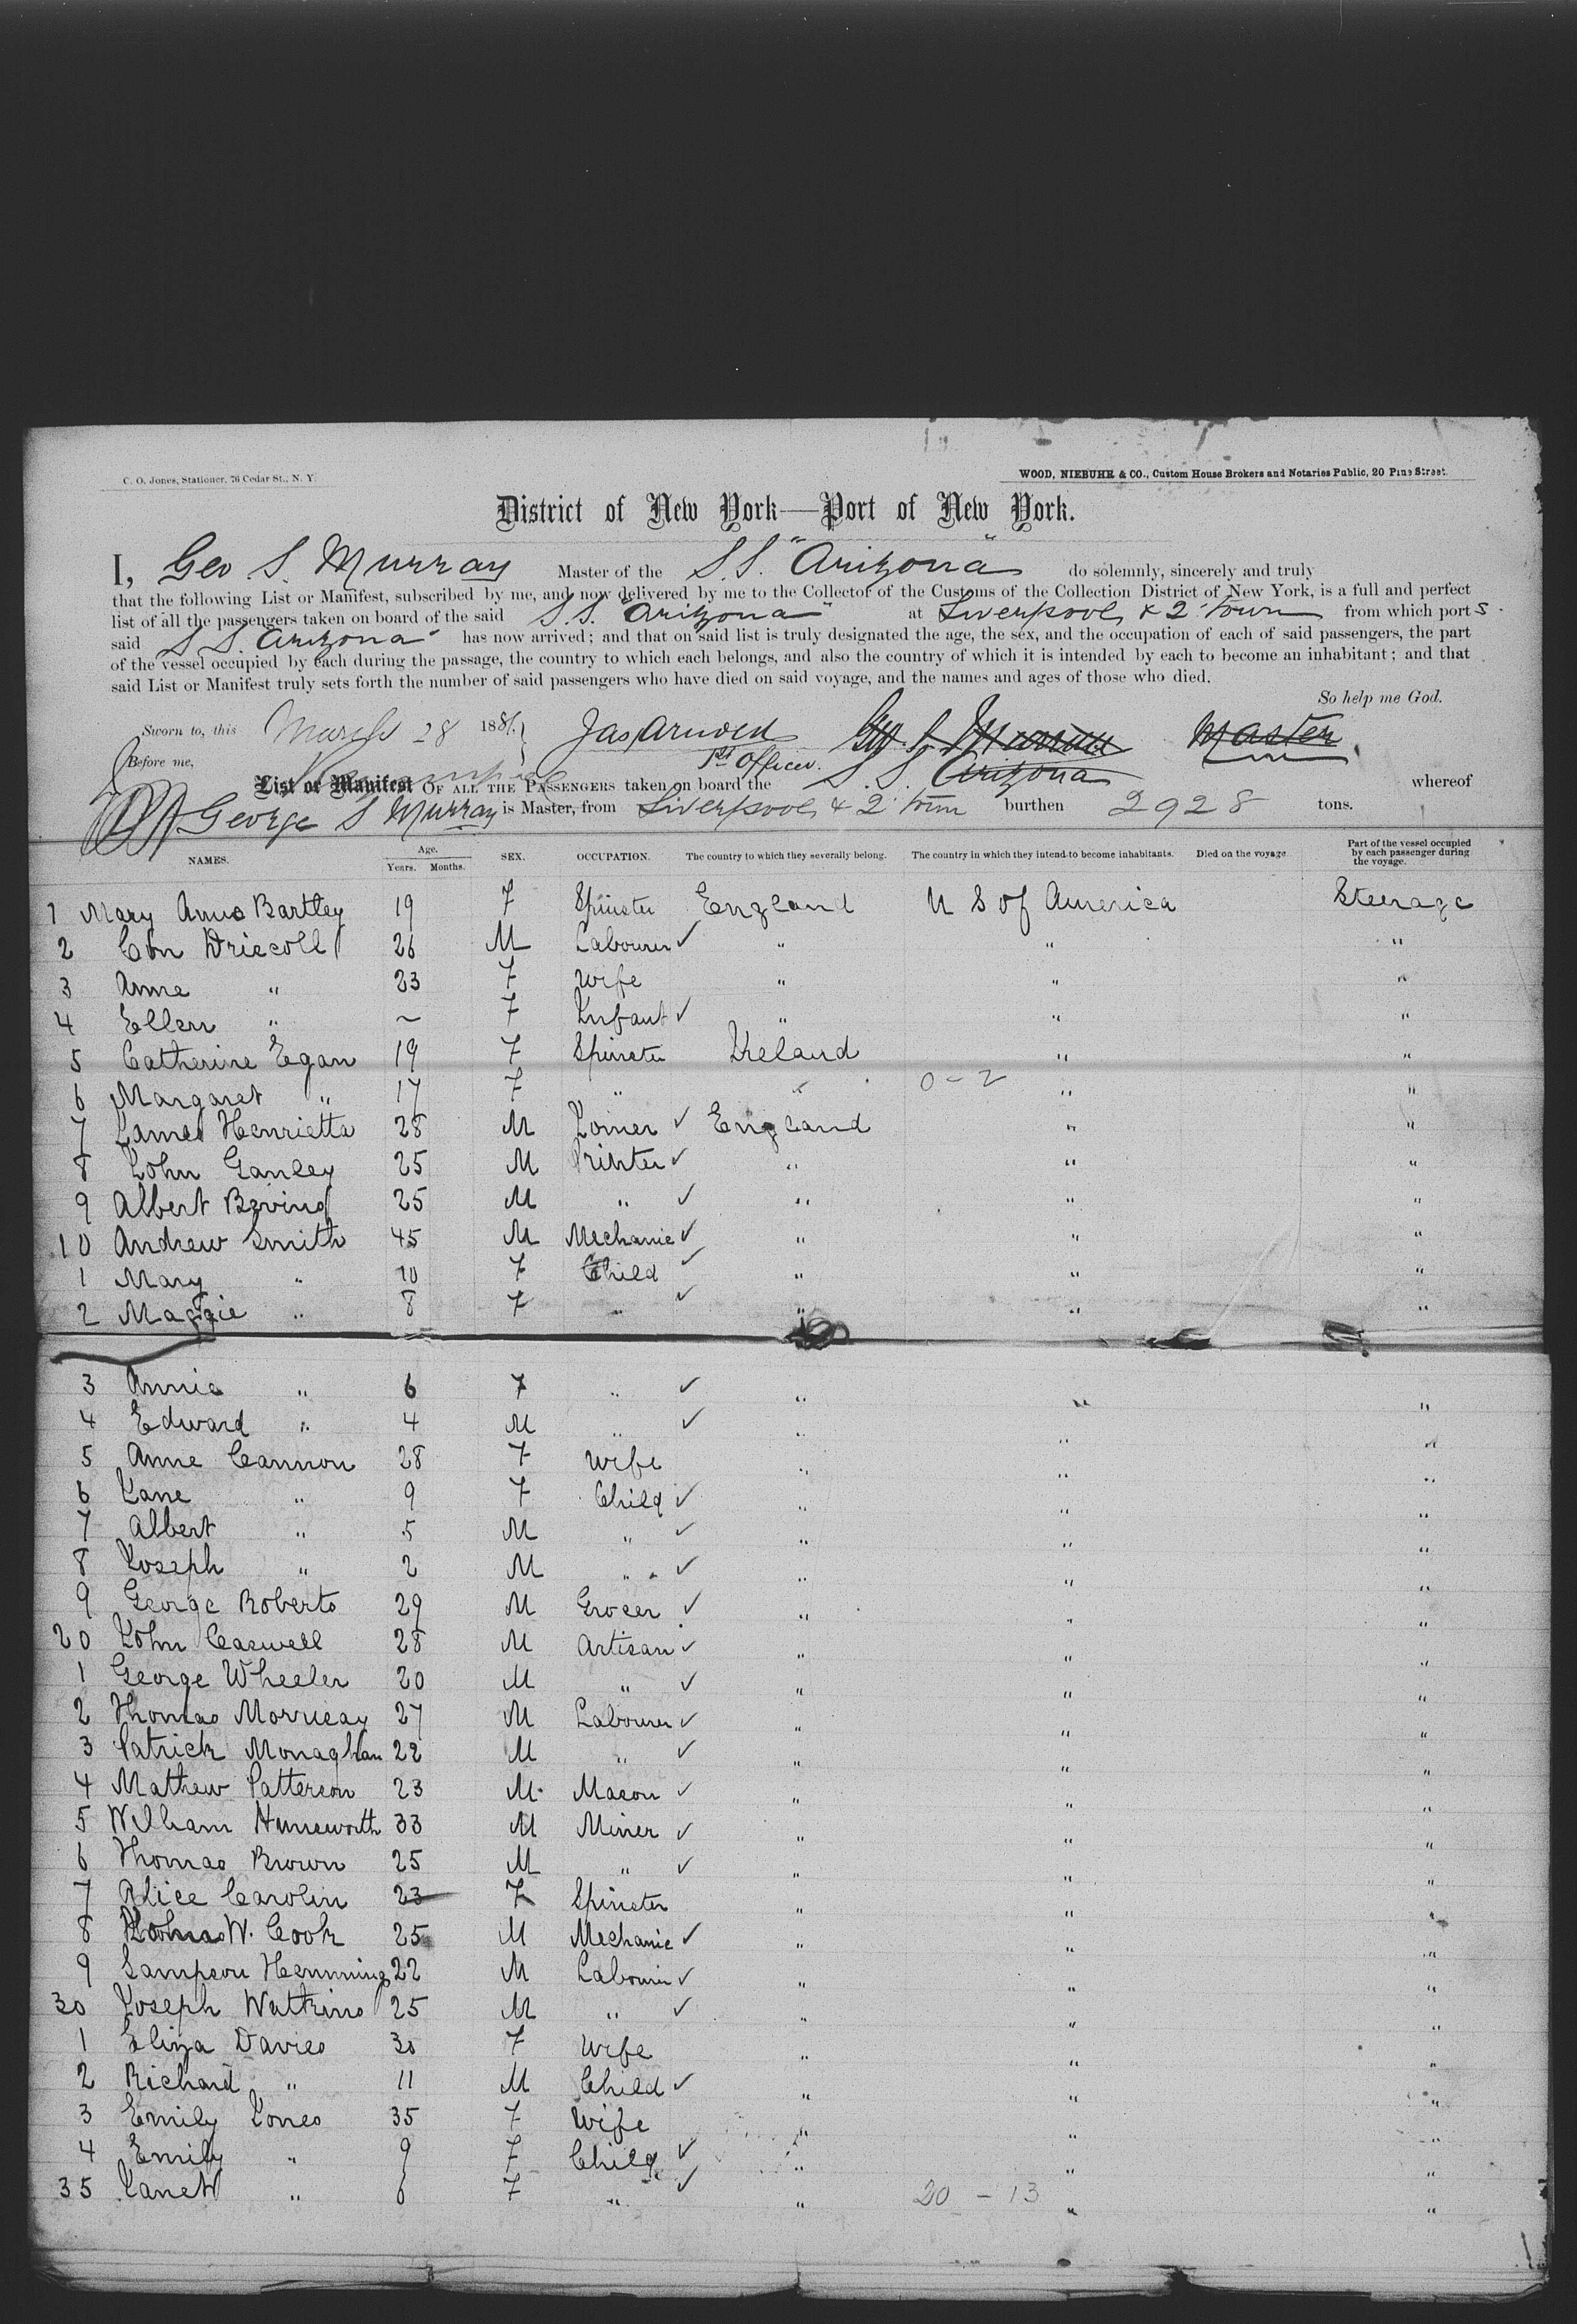 C. O. Jones, Stationer, 76 Cedar St., N. Y.
WOOD, NIEBUHR & CO., Custom House Brokers and Notaries Public, 20 Pine Street.
District of New York—Port of New York.
I, Geo S. Murray Master of the S.S. "Arizona" do solemnly, sincerely and truly
that the following List or Manifest, subscribed by me, and now delivered by me to the Collector of the Customs of the Collection District of New York, is a full and perfect
list of all the passengers taken on board of the said S.S. "Arizona" at Liverpool & Q. Town from which port s
said S S. Arizona" has now arrived; and that on said list is truly designated the age, the sex, and the occupation of each of said passengers, the part
of the vessel occupied by each during the passage, the country to which each belongs, and also the country of which it is intended by each to become an inhabitant; and that
said List or Manifest truly sets forth the number of said passengers who have died on said voyage, and the names and ages of those who died.
So help me God.
Sworn to, this March 28 188 Jas Arnold Geo S Murray Master
Before me, 1st Officer.
List or Manifest OF ALL THE PASSENGERS taken on board the S. S. Arizona whereof
George S Murray is Master, from Liverpool & Q. Town burthen 2928 tons.
NAMES. Age. Years. Months. SEX. OCCUPATION. The country to which they severally belong. The country in which they intend to become inhabitants. Died on the voyage Part of the vessel occupied by each passenger during the voyage.
1 Mary Anne Bartley 19 F Spinster England U S of America Steerage
2 Con Driscoll 26 M Labourer ✓ " " "
3 Anne " 23 F Wife " " "
4 Ellen " ~ F Infant ✓ " " "
5 Catherine Egan 19 F Spinster Ireland " "
6 Margaret " 17 F " " 0-2 " "
7 James Henrietta 28 M Joiner ✓ England " "
8 John Ganley 25 M Printer ✓ " " "
9 Albert 25 M " ✓ " " "
10 Andrew Smith 45 M Mechanic ✓ " " "
1 Mary " 10 F Child ✓ " " "
2 Maggie " 8 F " ✓ " " "
3 Annie " 6 F " ✓ " " "
4 Edward " 4 M " ✓ " " "
5 Anne Cannon 28 F Wife " " "
6 Jane " 9 F Child ✓ " " "
7 Albert " 5 M " ✓ " " "
8 Joseph " 2 M " ✓ " " "
9 George Roberts 29 M Grocer ✓ " " "
20 John Caswell 28 M Artisan ✓ " " "
1 George Wheeler 20 M " ✓ " " "
2 Thomas 27 M Labourer ✓ " " "
3 Patrick Monaghan 22 M " ✓ " " "
4 Mathew Patterson 23 M Mason ✓ " " "
5 William 33 M Miner ✓ " " "
6 Thomas Brown 25 M " ✓ " " "
7 Alice Carolin 23 F Spinster " " "
8 Thomas W. Cook 25 M Mechanic ✓ " " "
9 Sampson Hemmings 22 M Labourer ✓ " " "
30 Joseph Watkins 25 M " ✓ " " "
1 Eliza Davies 30 F Wife " " "
2 Richard " 11 M Child ✓ " " "
3 Emily Jones 35 F Wife " " "
4 Emily " 9 F Child ✓ " " "
35 Janet " 6 F " ✓ " 20 - 13 " "